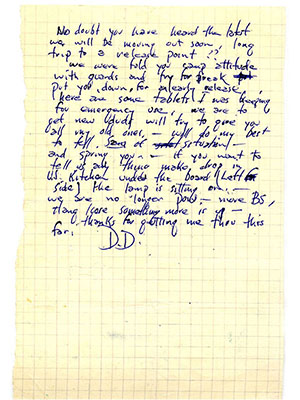 No doubt you have heard the latest
we will be moving out soon long
trip to a release point ??
we were told your camp attitude
with guards and try for break
put you down for an early release
Here are some tablets I was keeping
for emergency use, we are to
get new (good) will try to give you
all my old ones, — will do my best
to tell of situation —
and spring you — if you want to
tell of any thing make drop in
US. kitchen under the board (left
side) the lamp is sitting on, —
we are no longer POWs — more BS,
Hang loose something more is up —
thanks for getting me thru this
far.
D.D.